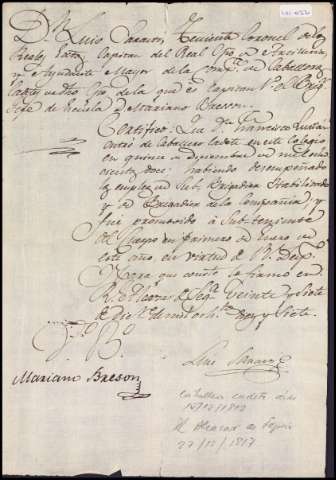 Dn Luis Panaro, Teniente Coronel de los
Rs Extos Capitan del Real Cpo de Artilleria
y Ayudante Mayor de la Compa de Caballeros
Cadetes de dho Cpo de la que es Capitan
Xefe de Escuela Dn Mariano Breson.
Certifico: Que Dn Francisco
entró de Caballero Cadete en este Colegio
en quince de Diciembre de mil ocho
cientos doce: habiendo desempeñado
los empleos de Sub-Brigadier Habilitado
y de Brigadier de la Compañia, y
fué promovido á Sub-teniente
del Cuerpo en primero de Enero de
este año en virtud de Rl Orden
Y para que conste lo firmo en
Rl Alcazar de Sega Veinte y Siete
de Dice de mil ochos Diez y Siete.
Vo Bo
Luis Panaro
Mariano Breson
Caballero cadete desde
15/12/1812
Rl Alcazar de Segovia
27/12/1817